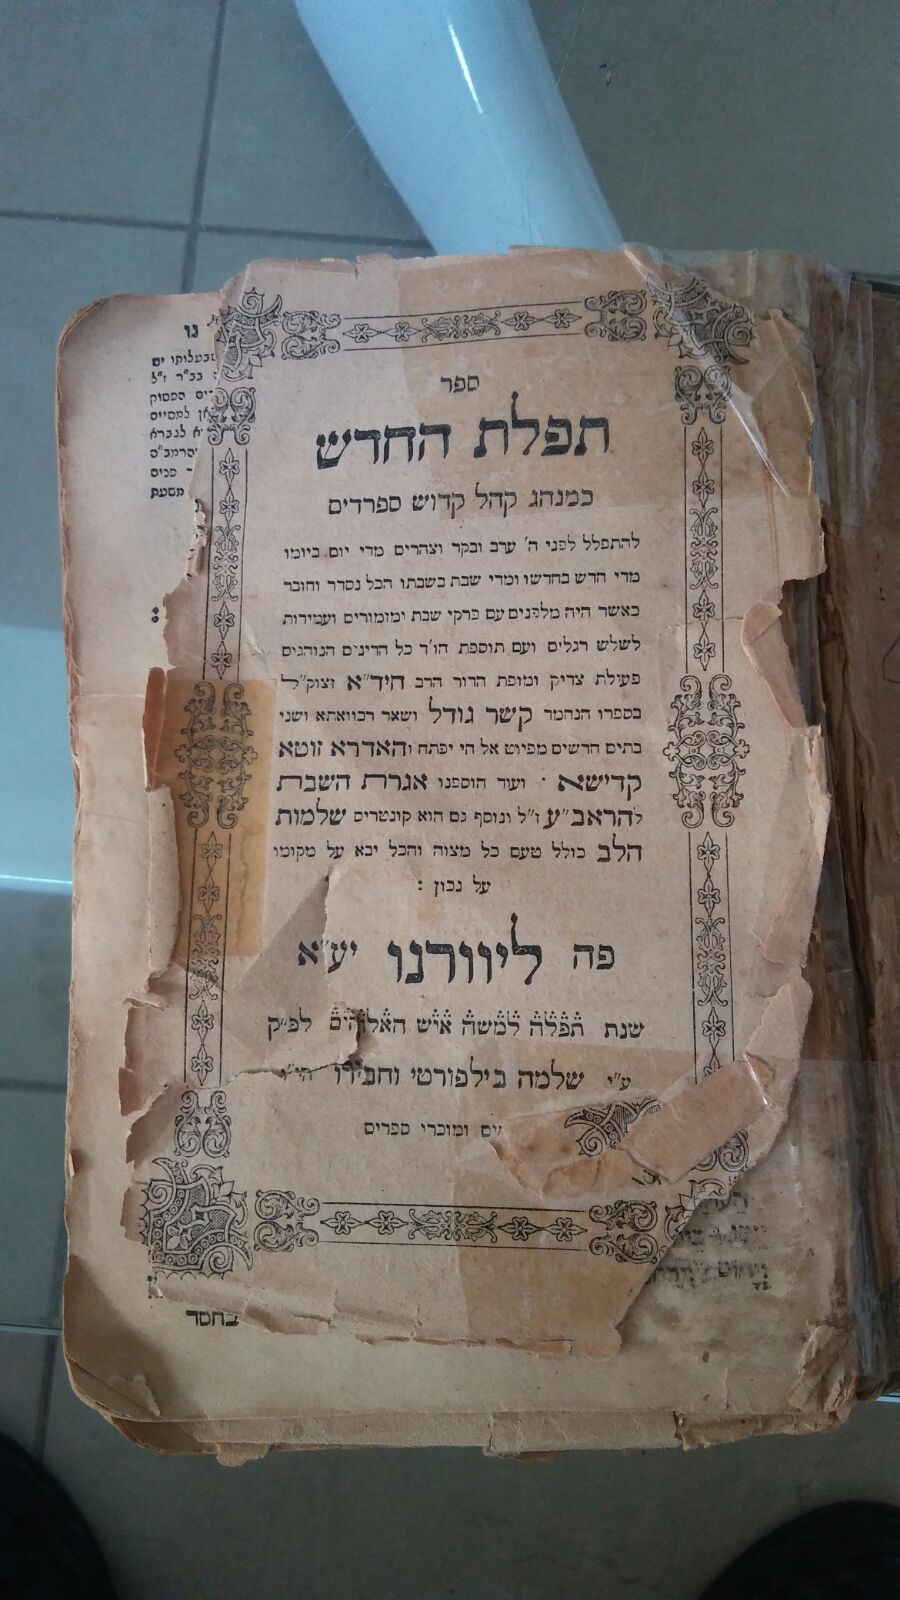 ספר
תפלת החדש
כמנהג קהל קדוש ספרדים
להתפלל לפני ה' ערב ובקר וצהרים מדי יום ביומו
מדי חדש בחדשו ומדי שבת בשבתו הכל נסדר וחובר
כאשר היה מלפנים עם פרקי שבת ומזמורים ועמידות
לשלש רגלים ועם תוספת הו'ד כל הדינים הנוהגים
פעולת צדיק ומופת הדור הרב חיד"א זצוק"ל
בספרו הנחמד קשר גודל ושאר רבוואתא ושני
בתים חדשים מפיוט אל חי יפתח והאדרא זוטא
קדישא · ועוד הוספנו אגרת השבת
להראב"ע ז"ל ונוסף גם הוא קונטריס שלמות
הלב כולל טעם כל מצוה והכל יבא על מקומו
על נכון :
פה ליוורנו יע"א
שנת תפלה למשה איש האלהים לפ"ק
ע"י שלמה בילפורטי וחבירו
ומוכרי ספרים
נו
שבעלותו ים
בב"ר ז"ל
הפסוק
למסיים
לגברא
פנים
משעת
:
בחסד